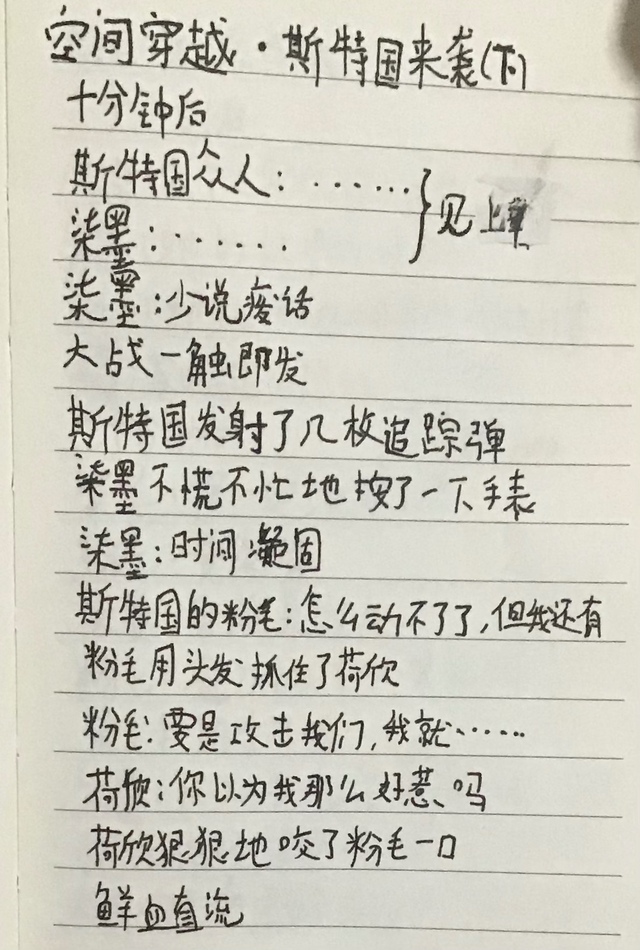 空间穿越·斯特国来袭(下)
十分钟后
斯特国众人:·······}见上章
柒墨:·······
柒墨:少说废话
大战一触即发
斯特国发射了几枚追踪弹
柒墨不慌不忙地按了一下手表
柒墨:时间凝固
斯特国的粉毛:怎么动不了了,但我还有
粉毛用头发抓住了荷欣
粉毛:要是攻击我们,我就······
荷欣:你以为我那么好惹吗
荷欣狠狠地咬了粉毛一口
鲜血直流